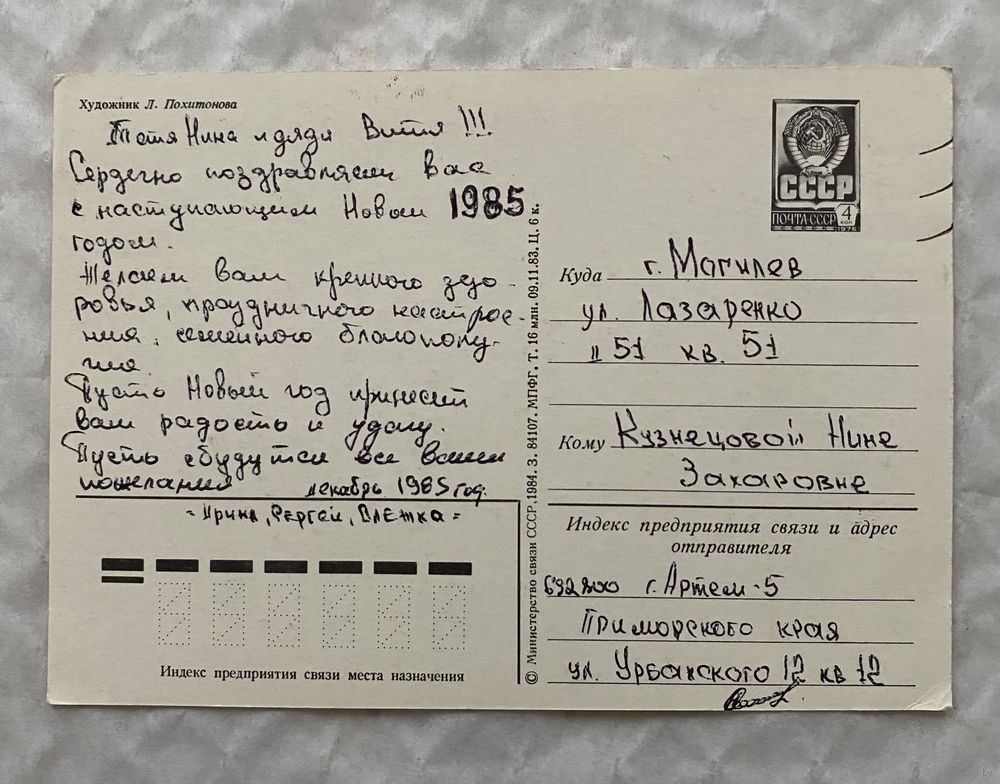 Художник Л. Похитонова
Тетя Нина и дядя Витя!!!
Сердечно поздравляем Вас
с наступающим Новым 1985
годом.
Желаем вам крепкого здо-
ровья, праздничного настрое-
ния, семейного благополу-
чия.
Пусть Новый год принесет
вам радость и удачу.
Пусть сбудутся все ваши
пожелания декабрь 1985 год.
= Ирина, Сергей, Олежка =
Индекс предприятия связи места назначения
© Министерство связи СССР, 1984. З. 84107. МПФГ. Т. 16 млн. 09.11.83. Ц. 6 к.
СССР
ПОЧТА СССР 4 коп
1976
Куда г. Магилев
ул. Лазаренко
51 кв. 51
Кому Кузнецовой Нине
Захаровне
Индекс предприятия связи и адрес
отправителя
692800 г. Артем-5
Приморского края
ул. Урбанского 12 кв 12